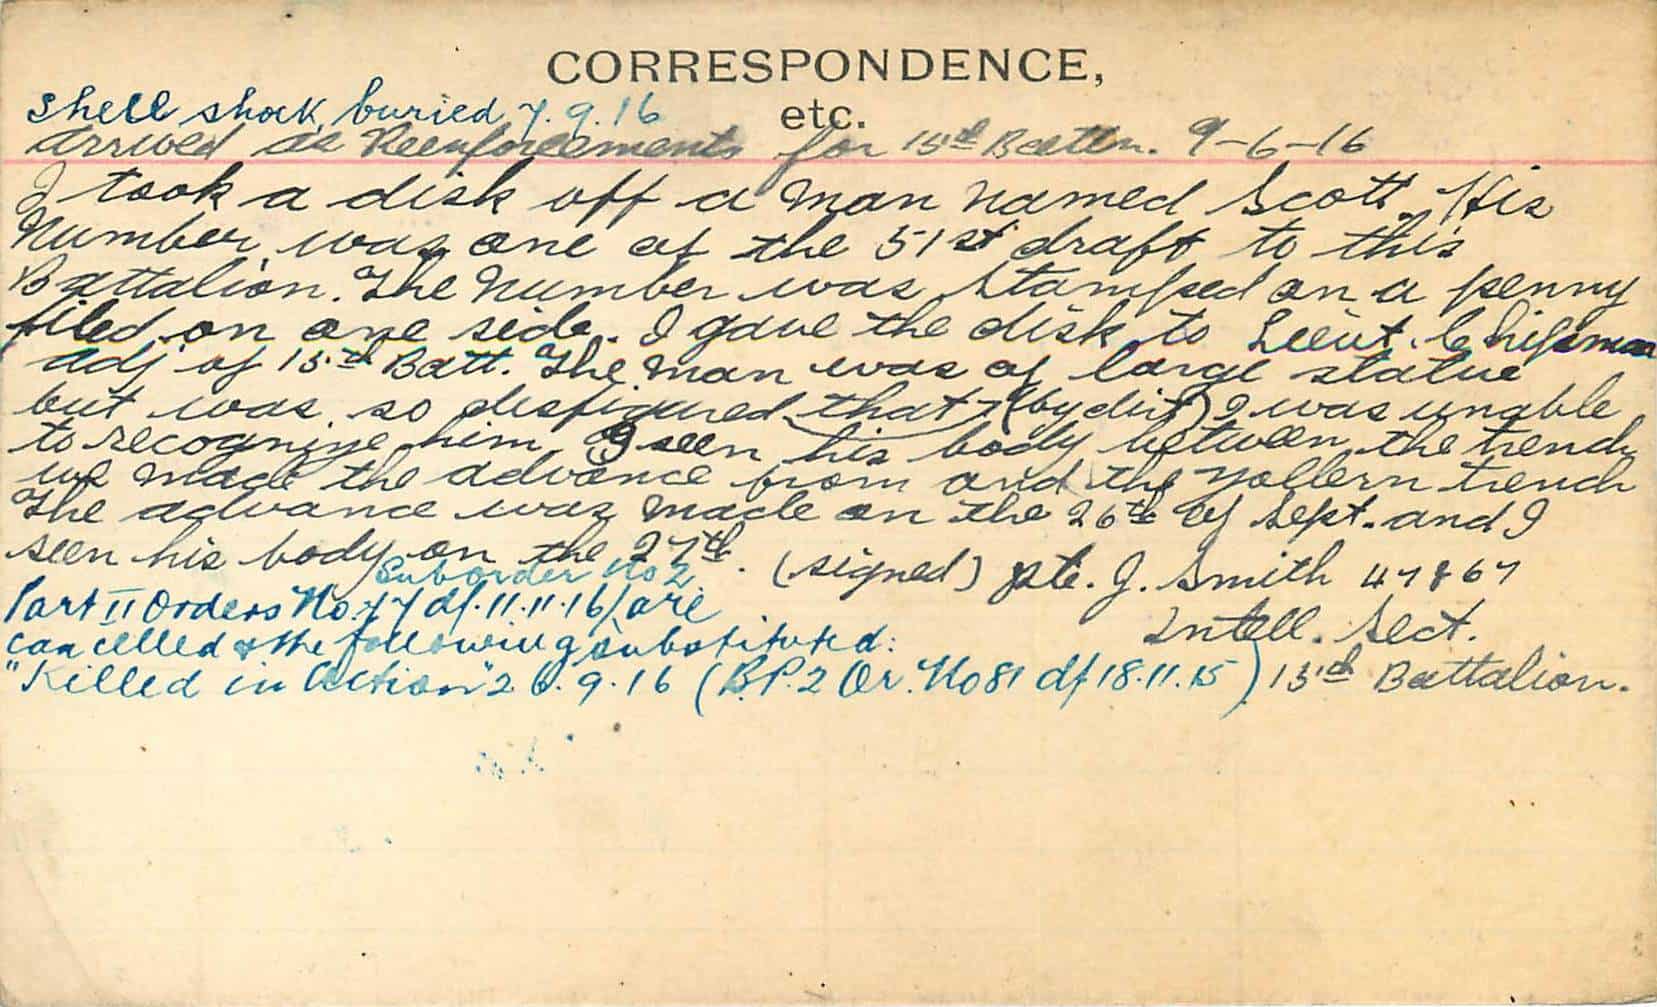 CORRESPONDENCE,
etc.
Shell shock, buried 7.9.16
arrived as Reenforcements for 15th Battn. 9-6-16
I took a disk off a man named Scott His
Number was one of the 51st draft to this
Battalion. The Number was stamped on a penny
filed on one side. I gave the disk to Lieut. Chipman
adj of 15th Batt. The man was of large statue
but was so desfigured that (by dirt) I was unable
to recognize him I seen his body between the trench
we made the advance from and the Zollern trench
The advance was made on the 26th of Sept. and I
seen his body on the 27th. (signed) Pte. J. Smith 47867
Intell. Sect.
15th Battalion.
Suborder No 2
Part II Orders No. 77 df. 11.11.16) are
cancelled & the following substituted:
"Killed in Action" 26.9.16 (B.P.2 Or. No 81 df 18.11.15)